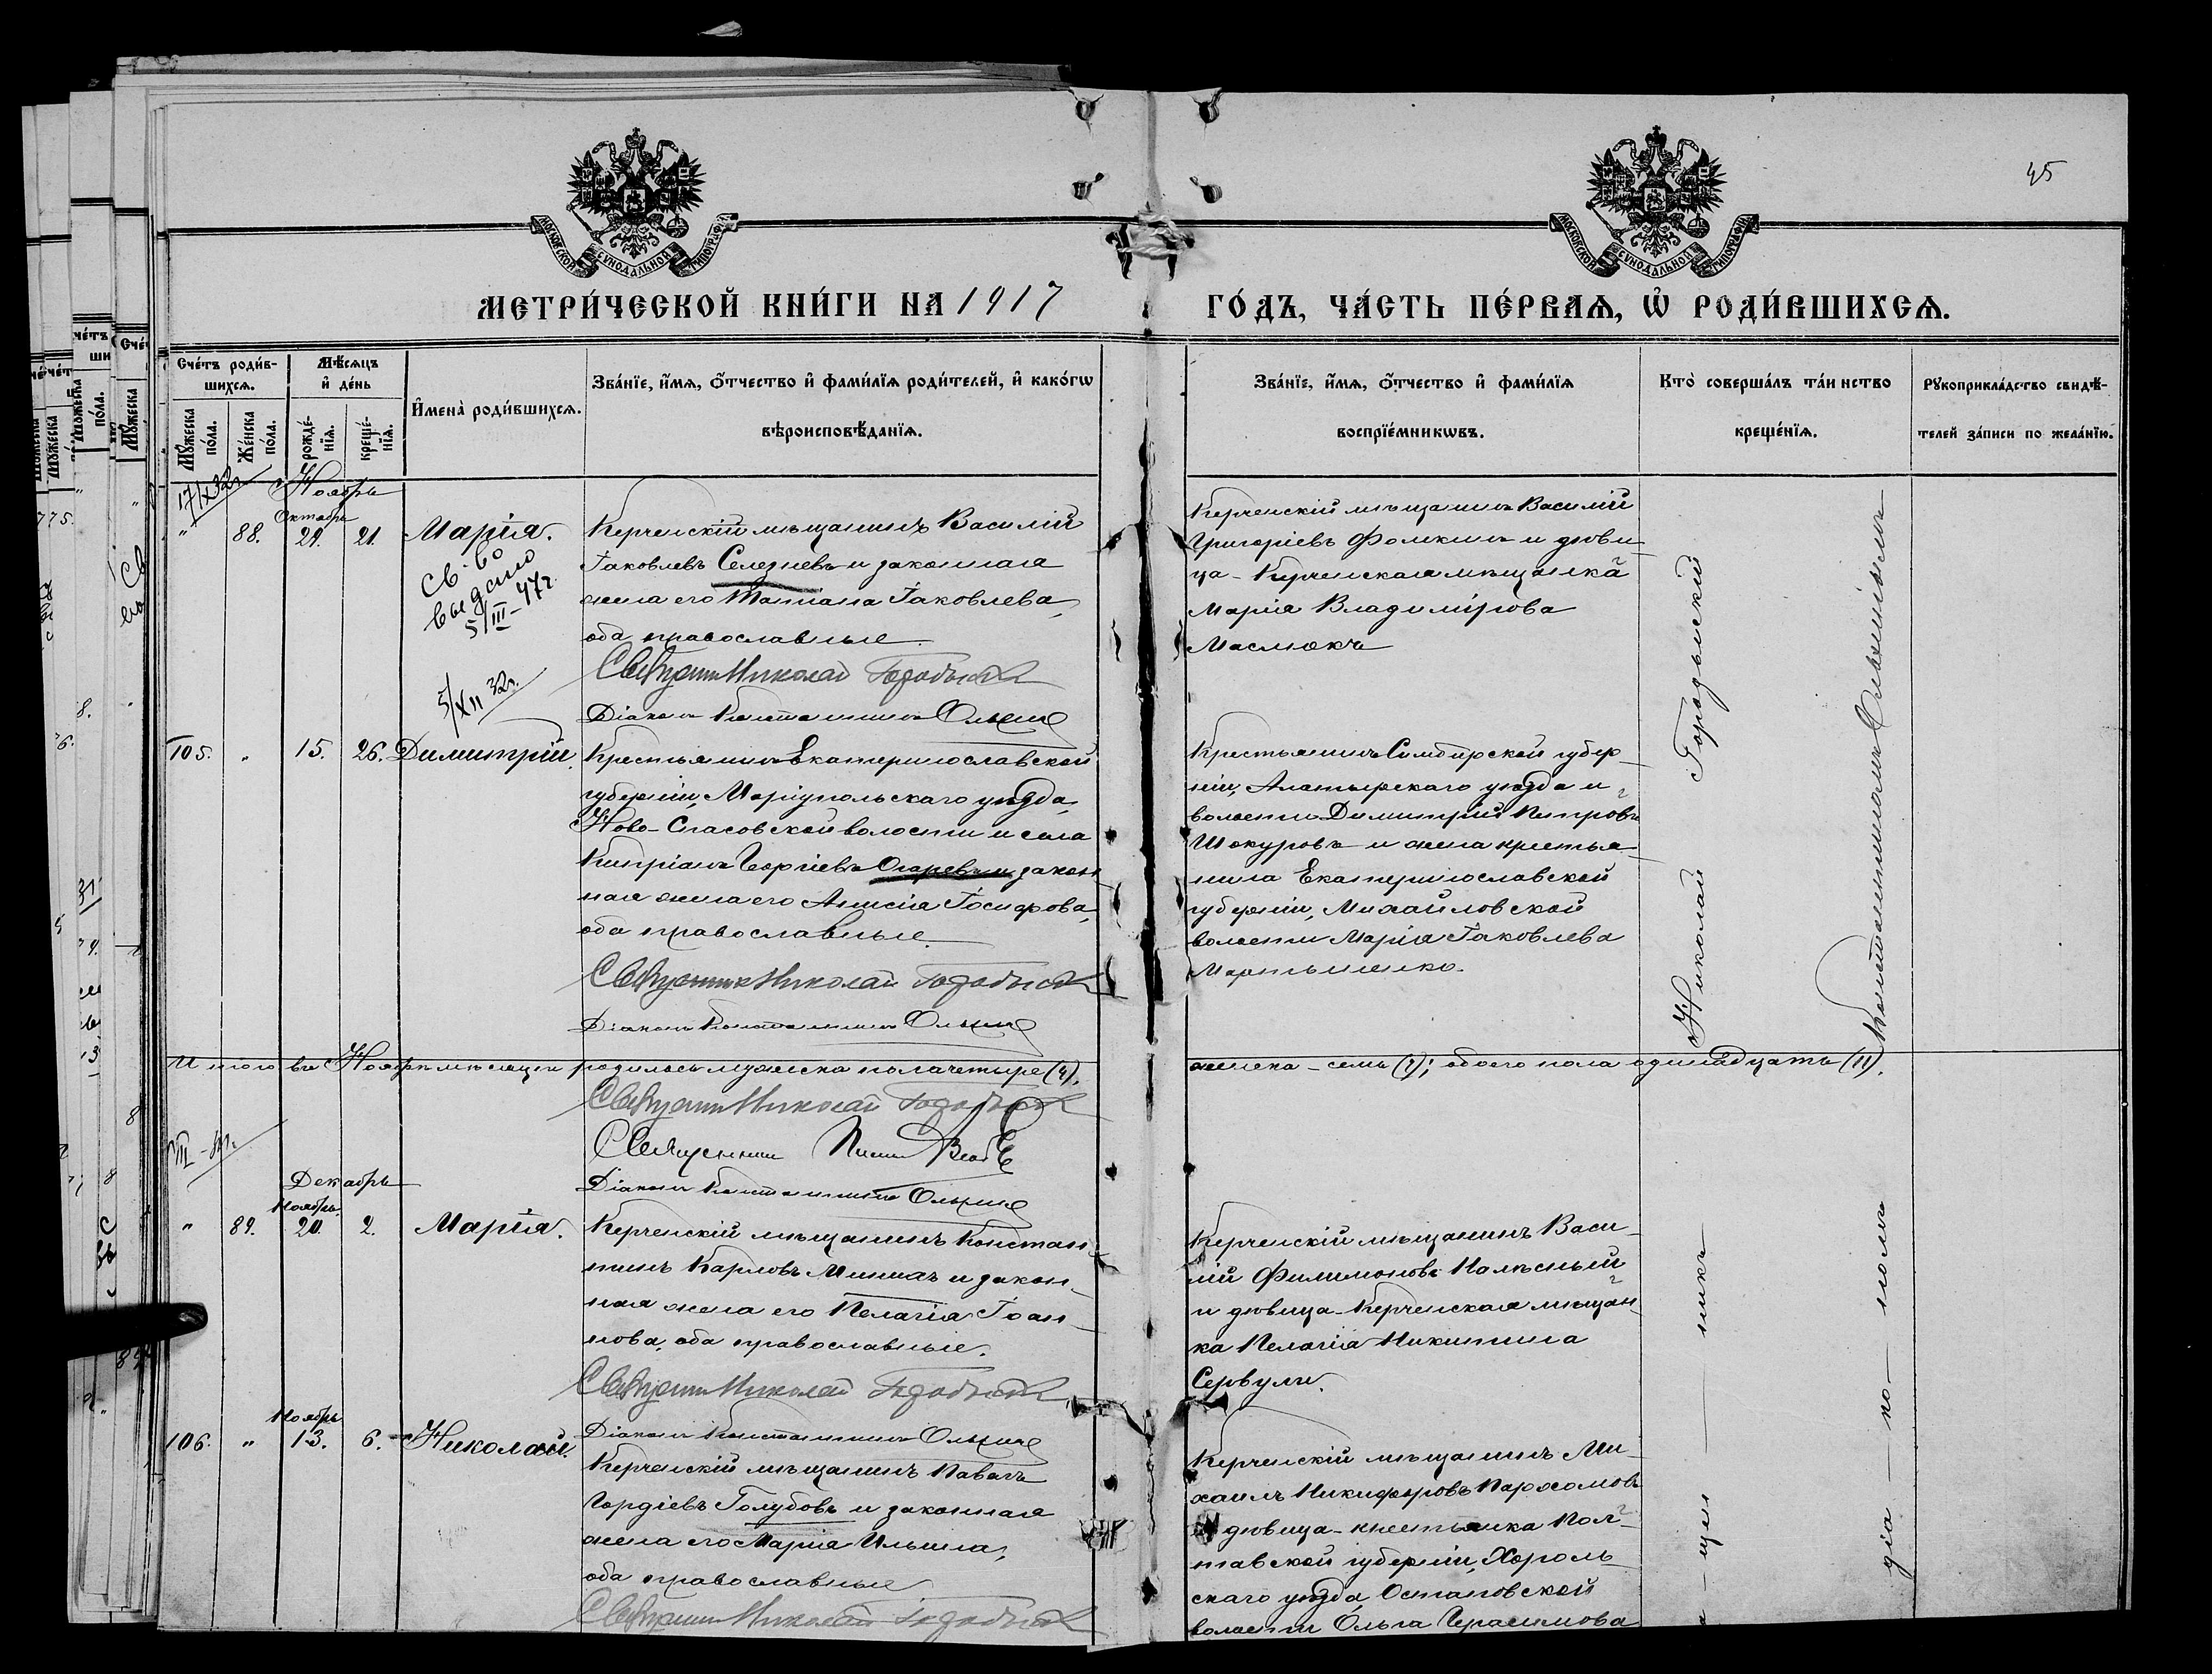 45
МОСКОВСКОЙ СѴНОДАЛЬНОЙ ТИПОГРАФІИ
МОСКОВСКОЙ СѴНОДАЛЬНОЙ ТИПОГРАФІИ
МЕТРИ́ЧЕСКОЙ КНИ́ГИ НА 1917
ГО́ДЪ, ЧА́СТЬ ПЕ́РВАѦ, Ѡ҆ РОДИ́ВШИХСѦ.
Сче́тъ роди́в-
шихсѧ.
Мꙋ́жеска по́ла.
Же́нска по́ла.
Мѣ́сѧцъ
и҆ де́нь
рожде́-
нїѧ.
креще́-
нїѧ.
И҆мена̀ роди́вшихсѧ.
Зва́нїе, и҆́мѧ, ѻ҆́тчество и҆ фами́лїѧ роди́телей, и҆ како́гѡ
вѣроисповѣ́данїѧ.
Зва́нїе, и҆́мѧ, ѻ҆́тчество и҆ фами́лїѧ
воспрїе́мникѡвъ.
Кто̀ соверша́лъ та́инство
креще́нїѧ.
Рꙋкоприкла́дство свидѣ́-
телей за́писи по жела́нїю.
17/X 32г.
Ноябрь
Октябрь
" 88. 29. 21. Марія.
Св-во
выдано
5/III-47г.
Керченскій мѣщанинъ Василій
Іаковлевъ Селезневъ и законная
жена его Татіана Іаковлева,
оба православные.
Священникъ Николай Городынскій
Діаконъ Константинъ
Керченскій мѣщанинъ Василій
Григоріевъ Фомкинъ и дѣви-
ца - Керченская мѣщанка
Марія Владимірова
Маслюкъ
5/XII 32г.
105. " 15. 26. Димитрій.
Крестьянинъ Екатеринославской
губерніи, Маріупольскаго уѣзда,
Ново-Спасовской волости и села
Кипріанъ Георгіевъ Огаревъ и закон-
ная жена его Анисія Іосифова,
оба православные.
Священникъ Николай Городынскій
Діаконъ Константинъ
Крестьянинъ Симбирской губер-
ніи, Алатырскаго уѣзда и
волости Димитрій Петровъ
Шокуровъ и жена крестья-
нина Екатеринославской
губерніи, Михайловской
волости Марія Іаковлева
Мартыненко.
Николай Городынскій
Константиномъ
Итого въ Ноябрѣ мѣсяцѣ родилось мужеска пола четыре (4),
женска - семь (7); обоего пола одинадцать (11).
Священникъ Николай Городынскій
Священникъ
Діаконъ Константинъ
Декабрь
Ноябрь
" 89. 20. 2. Марія.
Керченскій мѣщанинъ Констан-
тинъ Карловъ Минихъ и закон-
ная жена его Пелагія Іоан-
нова, оба православные.
Священникъ Николай Городынскій
Діаконъ Константинъ
Керченскій мѣщанинъ Васи-
лій Филимоновъ
и дѣвица - Керченская мѣщан-
ка Пелагія Никитина
Сервули.
Ноябрь
106. " 13. 6. Николай.
Керченскій мѣщанинъ Павелъ
Гордіевъ Голубовъ и законная
жена его Марія Ильина,
оба православные
Священникъ Николай Городынскій
Керченскій мѣщанинъ Ми-
хаилъ Никифоровъ Пархомовъ
и дѣвица - крестьянка Пол-
тавской губерніи, Хороль-
скаго уѣзда, Остаповской
волости Ольга Герасимова